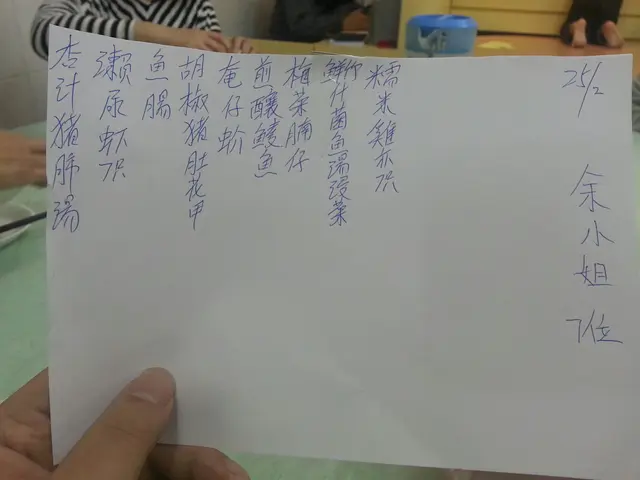 25/2
余小姐 7位
糯米雞
鮮什菌魚湯浸菜
梅菜腩仔
煎釀鯪魚
奄仔蚧
胡椒猪肚花甲
魚腸
瀨尿虾7只
杏汁猪肺湯